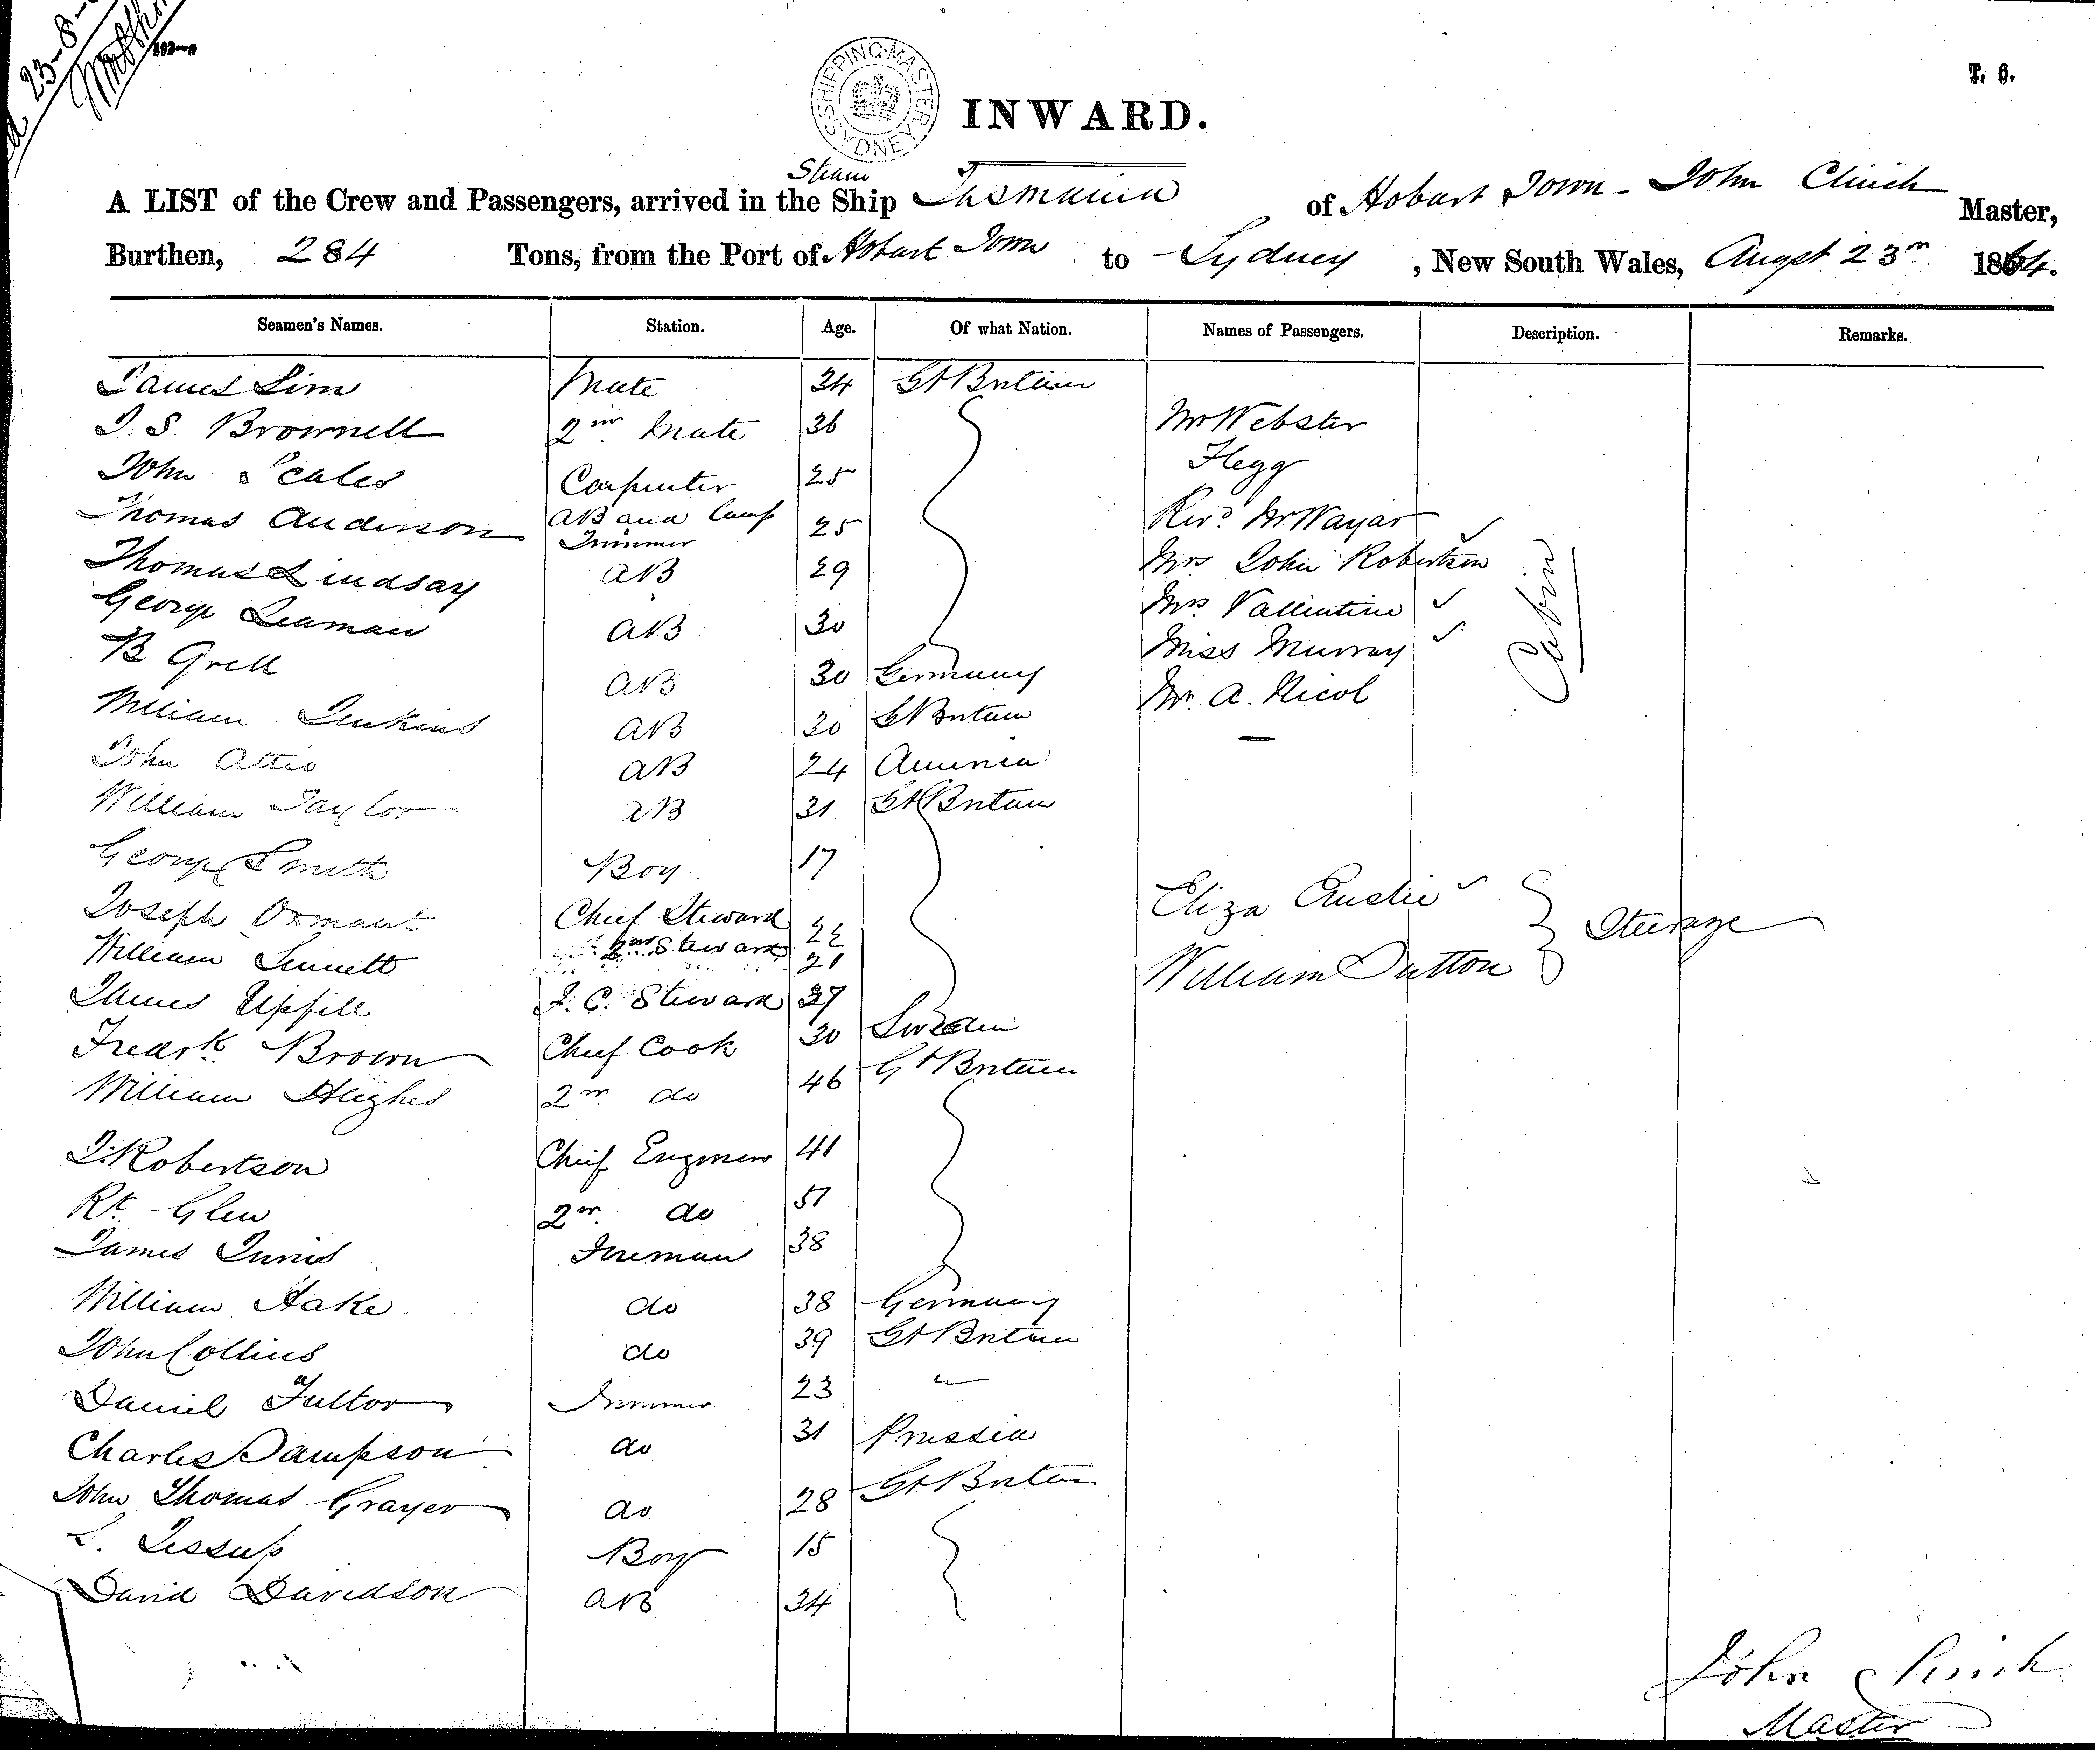 23-8-
T. 6.
SHIPPING MASTER SYDNEY
INWARD.
Steam
A LIST of the Crew and Passengers, arrived in the Ship Tasmania of Hobart Town - John Clinch Master,
Burthen, 284 Tons, from the Port of Hobart Town to Sydney, New South Wales, Augst 23rd 1864.
Seamen's Names. Station. Age. Of what Nation. Names of Passengers. Description. Remarks.
James Sim Mate 34 Gt Britain
J. S. Brownell 2nd Mate 36 Mr Webster
John Scales Carpenter 25 Flegg
Thomas Anderson AB and Lamp Trimmer 25 Revd Mr Wayar
Thomas Lindsay AB 29 Mrs John Robertson
George Leaman AB 30 Mrs Vallintine
B Grell AB 30 Germany Miss Murray
William Jenkins AB 30 Gt Britain Mr A. Nicol
Cabin
John Attis AB 24 America
William Taylor AB 31 Gt Britain
George Smith Boy 17
Joseph Ormant Chief Steward 22 Eliza Austie
William Sinnett 2nd Steward 21 Steerage
James Upfill F. C. Steward 37 William Dutton
Fredrk Brown Chief Cook 30 Sweden
William Hughes 2nd do 46 Gt Britain
J. Robertson Chief Engineer 41
Rt Glen 2nd do 51
James Innis Fireman 38
William Hake do 38 Germany
John Collins do 39 Gt Britain
Daniel Fulton Trimmer 23 "
Charles Sampson do 31 Prussia
John Thomas Grayer do 28 Gt Britain
L. Jessup Boy 15
David Davidson AB 34
John Clinch
Master